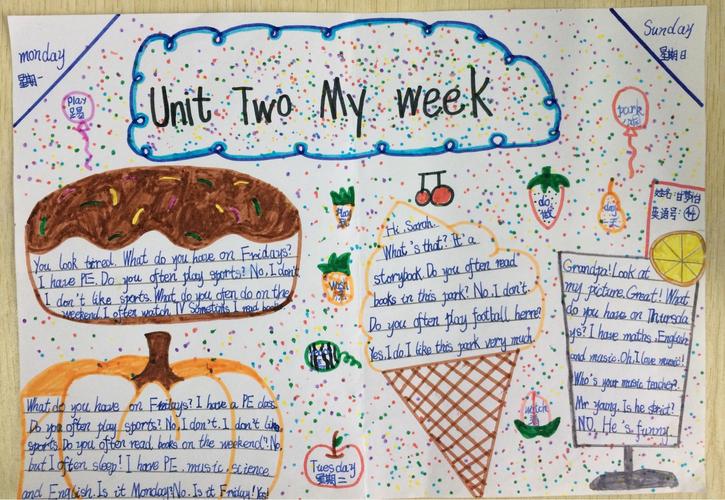 monday
星期一
Sunday
星期日
Unit Two My week
play
park
You look tired. What do you have on Fridays?
I have PE. Do you often play sports? No, I don't
I don't like sports. What do you ofen do on the
weekend I ofter watch TV Sometimts I read books
Hi Sarah.
What's that? It a
storybook. Do you often read
books in this park? No. I don't.
Do you often play football here?
Yes. I do. I like this park very much
Grandpa! Look at
my picture. Great! What
do you have on Thursda
ys? I have maths. English
and music. Oh. I love music!
Who's your music teacher?
Mr young. Is he strict?
NO. He's funny.
What do you have on Fridays? I have a PE class.
Do you often play sports? No. I don't. I don't like
sports. Do you often read books on the weekend? No.
but I often sleep! I have PE. music. science
and English. Is it Monday? No. Is it Friday! Yes!
do
做
day
wash
watch
Tuesday
星期二
姓名:
英语号: